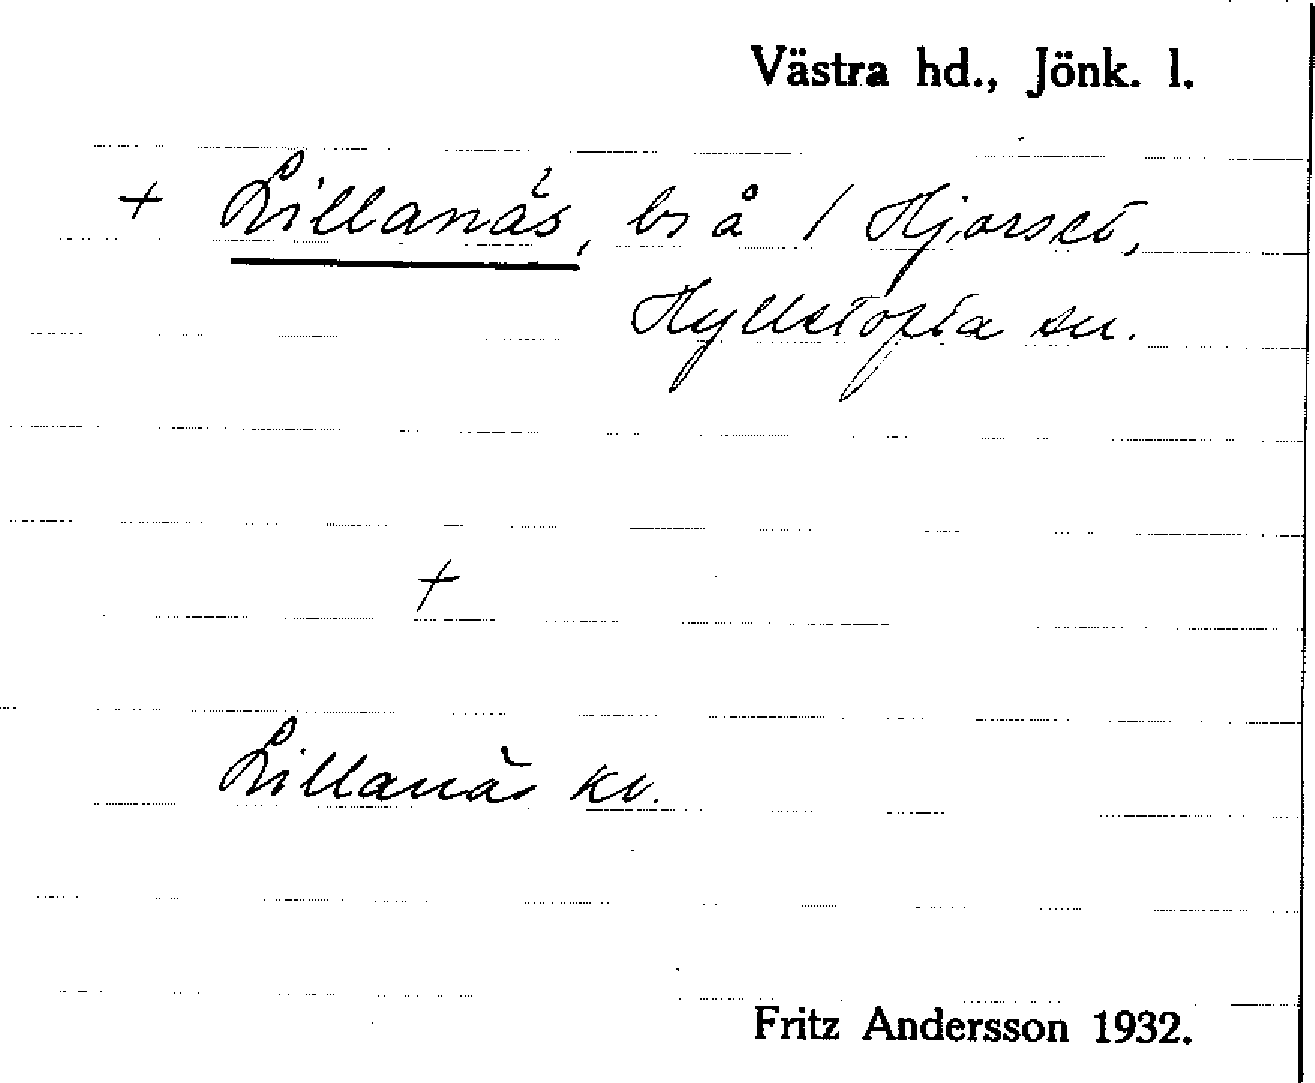 Västra hd., Jönk. l.
+ Lillanäs, bs å / Hjorset,
Hyllstofta sn.
+
Lillanäs kv.
Fritz Andersson 1932.